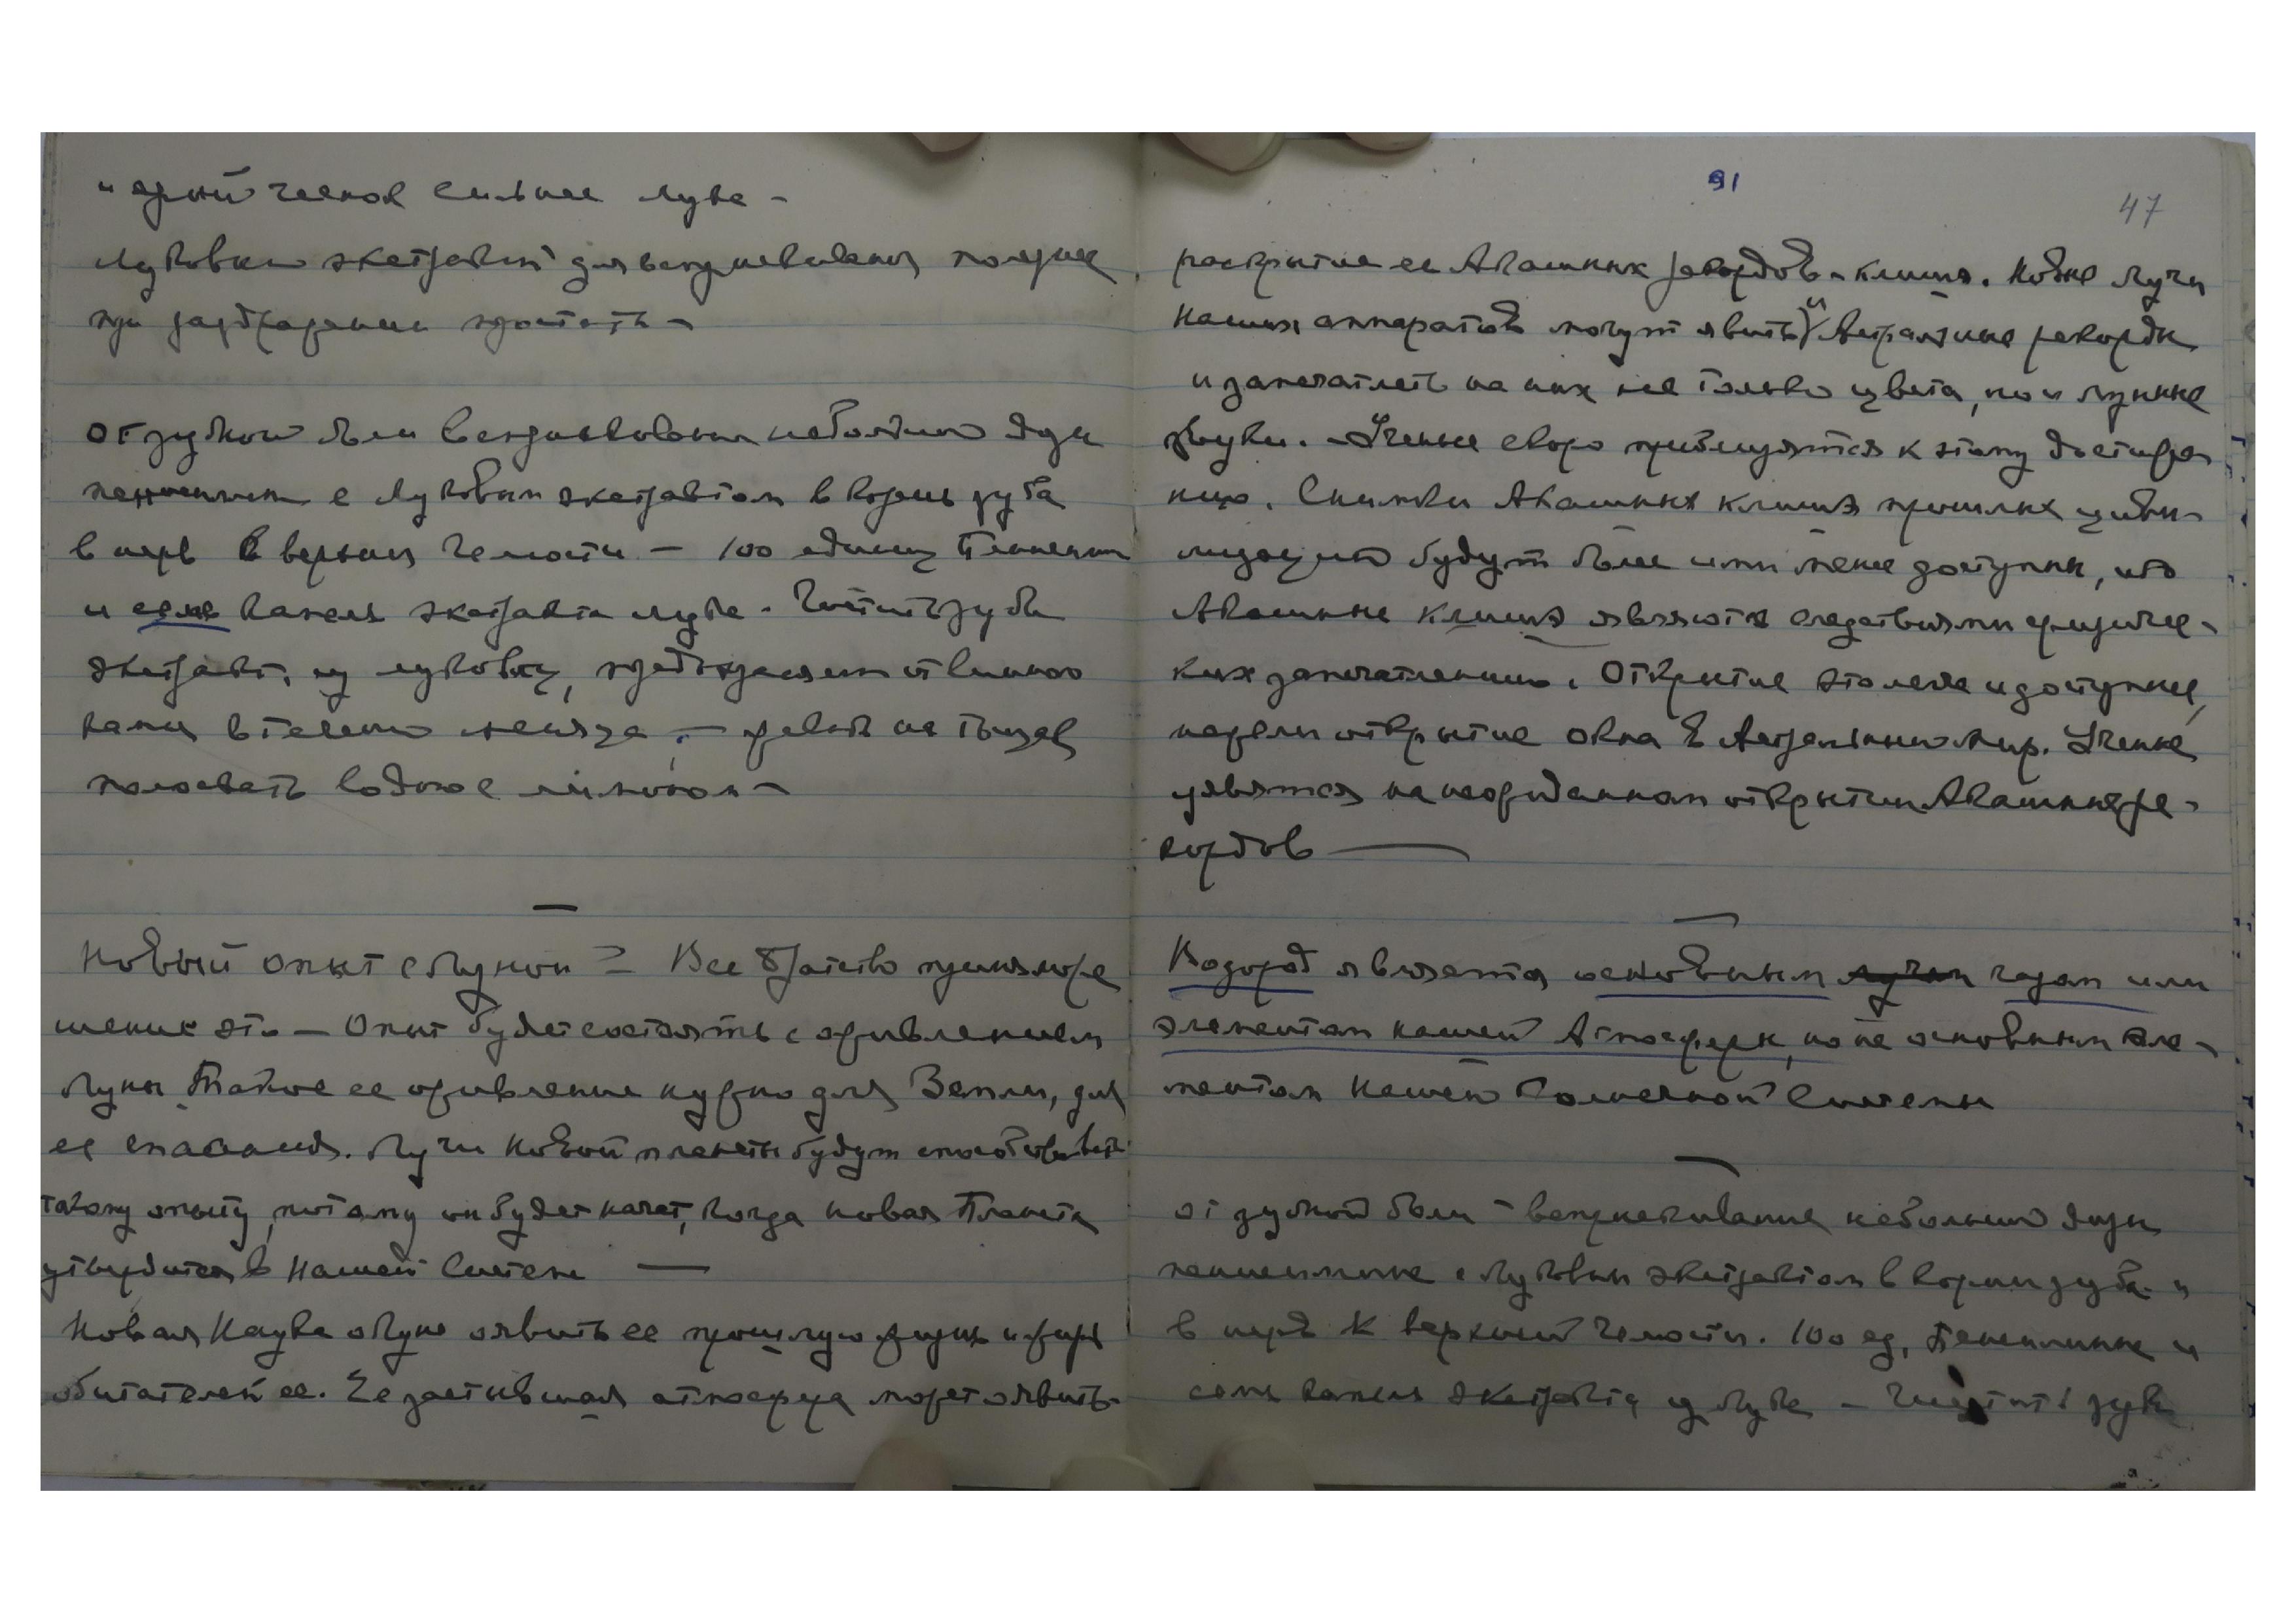 и один чеснок сильнее лука –
Луковый экстракт для вспрыскивания полезнее
при раздражении простаты –
от зубной боли вспрыскивания небольшой дозы
пенициллина с Луковым экстрактом в корень зуба
в нерв в верхней челюсти – 100 единиц Пеницилли
и семь капель экстракта лука. Чистить зубы
экстракт. из луковиц, предохраняет от винного
камня в течении месяца, –
полоскать водою с лимоном –
Новый опыт с Луной – Все Братство
шение это – Опыт будет состоять с оживлением
Луны. Такое ее оживление нужно для Земли, для
ее спасения. Лучи Новой планеты будут способствовать
такому опыту, потому он будет начат, когда новая Планета
утвердится в Нашей Системе —
Новая Наука о Луне оявить ее прошлую жизнь и
обитателей ее. Ее застывшая атмосфера может оявить
91
47
раскрытие ее Акашных рекордов – клише. Новые Лучи
Наших аппаратов могут явить и Астральные рекорды
и запечатлеть на них не только цвета, но и лунные
звуки. – Ученые скоро приблизятся к этому достиже
нию. Снимки Акашных клише прошлых циви-
лизаций будут более или менее доступны, ибо
Акашные клише являются следствиями физичес-
ких запечатлений. Открытие это легче и доступнее,
нежели открытие окна в Астральный мир. Ученые
удивятся на неожиданном открытии Акашных ре-
кордов —
Водород является основным лучом газом или
элементом нашей Атмосферы, но не основным эле-
ментом Нашей Солнечной Системы
от зубной боли – вспрыскивание небольшой дозы
пенициллина с Луковым экстрактом в корни зуба и
в нерв к верхней челюсти. 100 ед. пенициллина и
семь капель экстракта из Лука – Чистить зубы